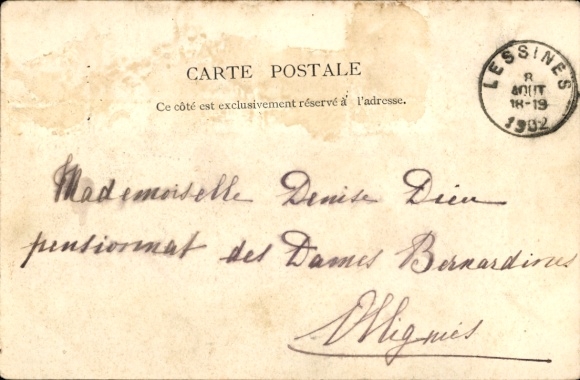 CARTE POSTALE
Ce côté est exclusivement réservé à l'adresse.
LESSINES
8
AOUT
18-19
1902
Mademoiselle Denise Dieu
pensionnat des Dames Bernardines
Ollignies